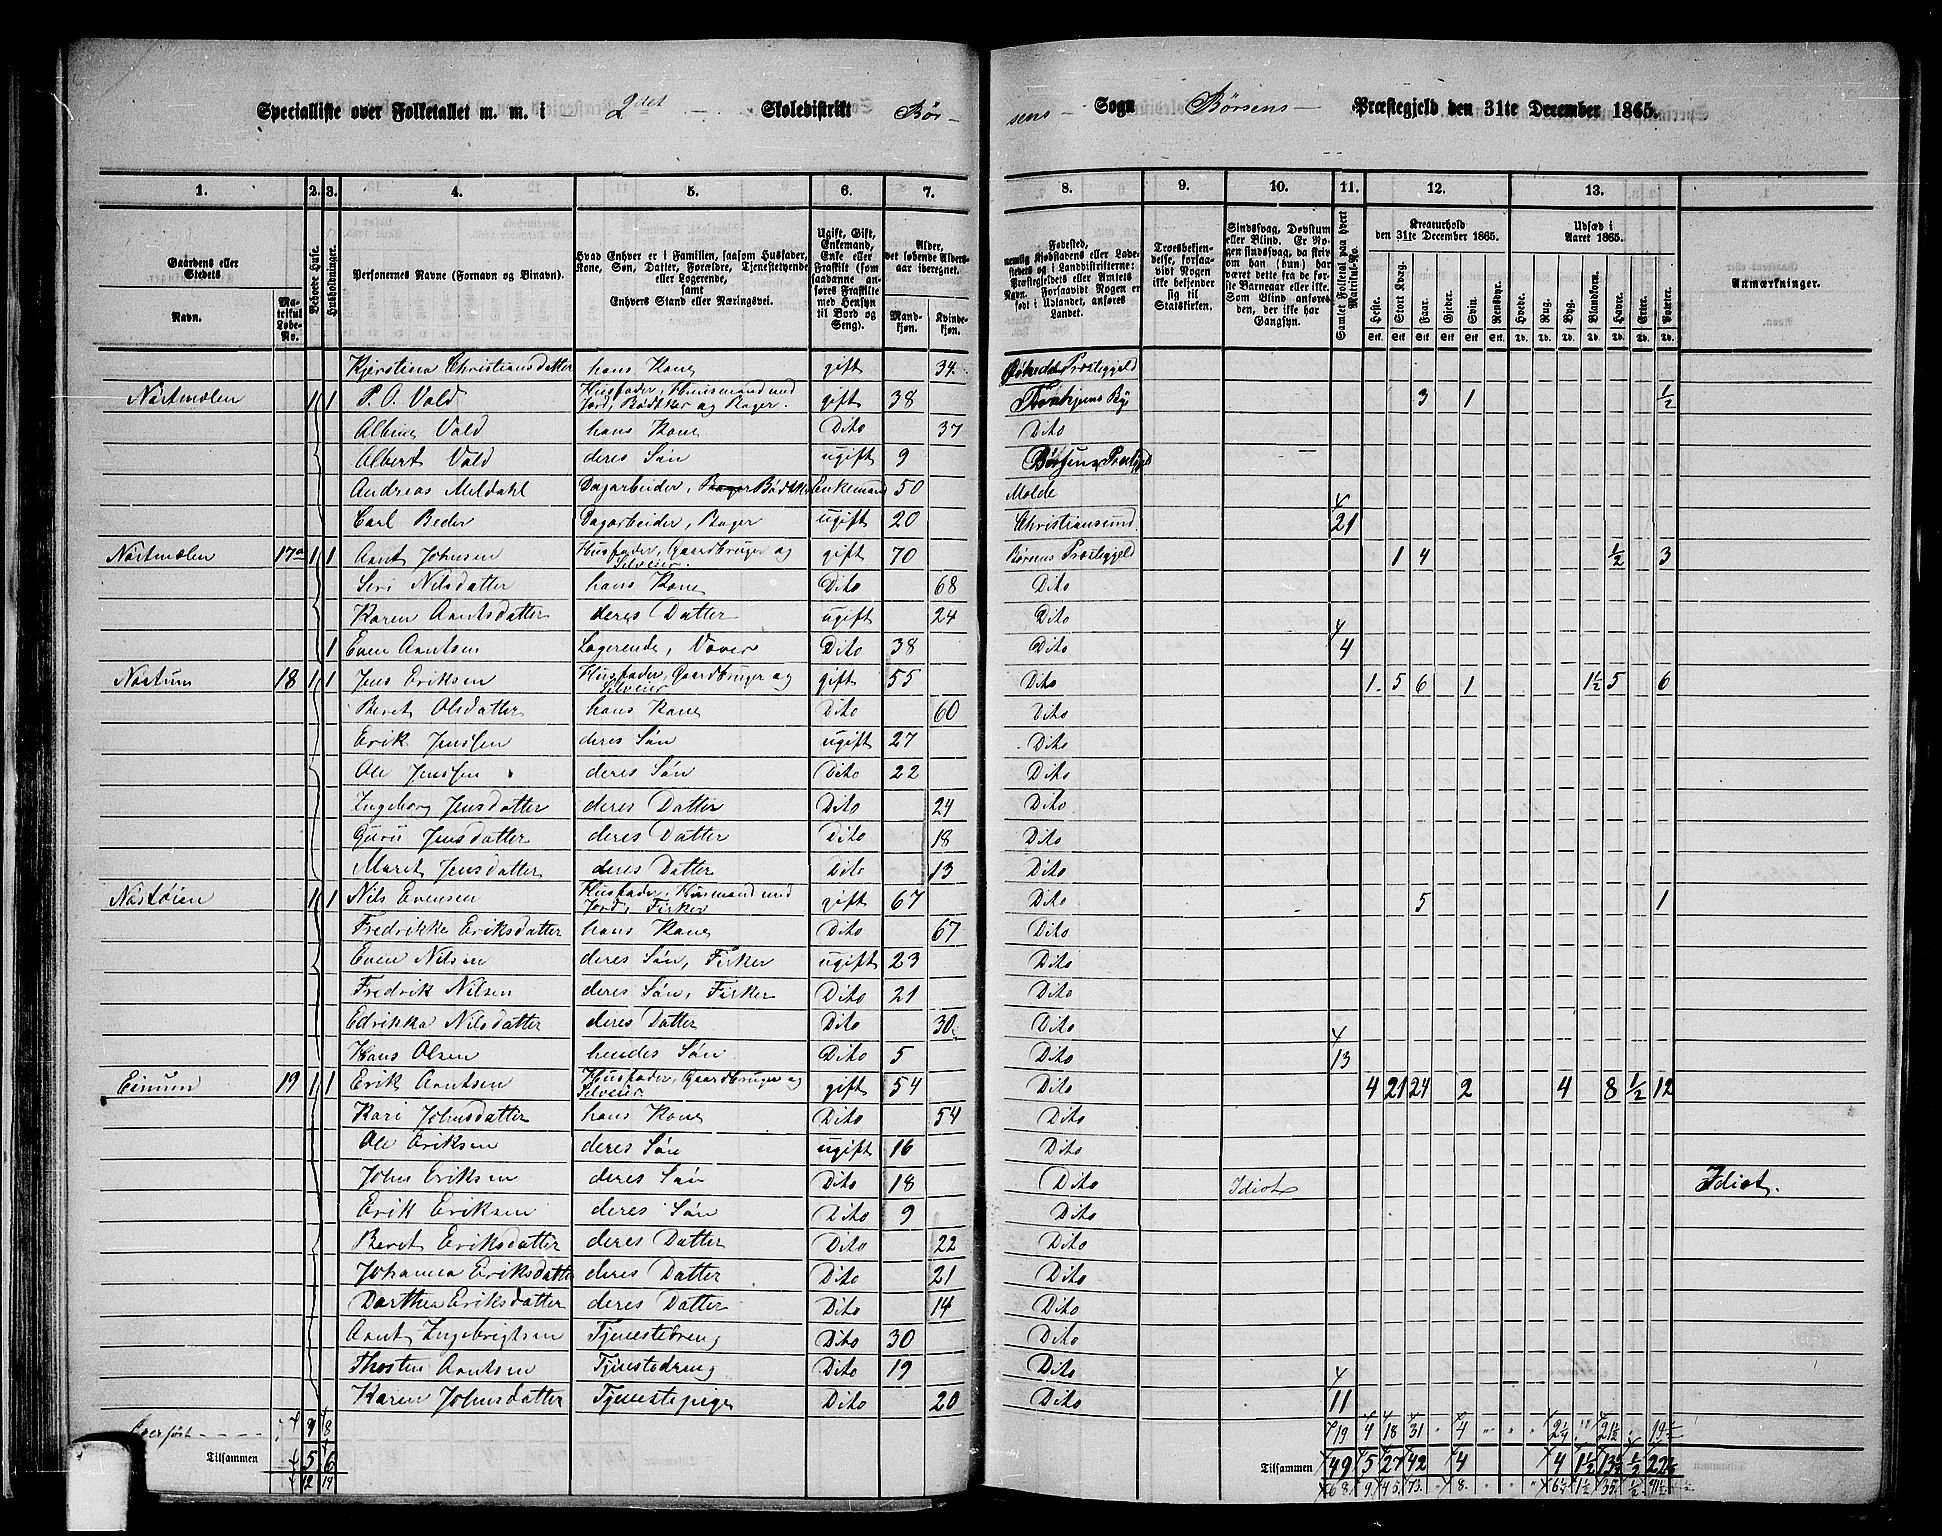 Specialliste over Folketallet m. m. i 2det Skoledistrikt Børsens Sogn Børsens Præstegjeld den 31te December 1865.
1. 2. 3. 4. 5. 6. 7. 8. 9. 10. 11. 12. 13. 1.
Gaardens eller Stedets Navn.
Matrikul Løbe-No.
Beboede Huse.
Husholdninger.
Personernes Navne (Fornavn og Binavn).
Hvad Enhver er i Familien, saasom Husfader, Kone, Søn, Datter, Forældre, Tjenestetyende eller Logerende, samt Enhvers Stand eller Næringsvei.
Ugift, Gift, Enkemand, Enke eller Fraskilt (som saadanne anføres Fraskilte med Hensyn til Bord og Seng).
Alder, det løbende Alders-aar iberegnet.
Mandkjøn. Kvindekjøn.
Troesbekjendelse, forsaavidt Nogen ikke bekjender sig til Statskirken.
Sindssvag, Døvstum eller Blind.
Samlet Folketal paa hvert Matrikul-No.
Kreaturhold den 31te December 1865.
Heste. Stort Kvæg. Faar. Gjeder. Sviin. Rensdyr.
Udsæd i Aaret 1865.
Hvede. Rug. Byg. Blandkorn. Havre. Erter. Poteter.
Anmærkninger.
Kjerstina Christiansdatter hans Kone gift 34 Præstegjeld
Nostmælen 1 1 P. O. Vald Husfader, Huusmand med Jord, Bødtker og Bager. gift 38 Trondhjems By 3 1 ½
Vald hans Kone Dito 37 Dito
Albert Vald deres Søn ugift 9 Børsens Præstegjeld
Andreas Meldahl Dagarbeider, Bager Bødtker Enkemand 50 Molde 4
Carl Beder Dagarbeider, Bager ugift 20 Christiansund 21
Nostmælen 17a 1 1 Arnt Johnsen Husfader, Gaardbruger og Selveier. gift 70 Børsens Præstegjeld 1 4 ½ 3
Siri Nilsdatter hans Kone Dito 68 Dito
Karen Arntsdatter deres Datter ugift 24 Dito 4
1 Even Arntsen Logerende, Væver Dito 38 Dito 4
Nostum 18 1 1 Jens Eriksen Husfader, Gaardbruger og Selveier gift 55 Dito 1 5 6 1 1½ 5 6
Beret Olsdatter hans Kone Dito 60 Dito
Erik Jenssen deres Søn ugift 27 Dito
Ole Jenssen deres Søn Dito 22 Dito
Ingeborg Jensdatter deres Datter Dito 24 Dito
Guru Jensdatter deres Datter Dito 18 Dito
Maret Jensdatter deres Datter Dito 13 Dito
Nostøien 1 1 Nils Evensen Husfader, Husmand med Jord, Fisker gift 67 Dito 5 1
Fredrikke Eriksdatter hans Kone Dito 67 Dito
Even Nilsen deres Søn, Fisker ugift 23 Dito
Fredrik Nilsen deres Søn, Fisker Dito 21 Dito
Edrikka Nilsdatter deres Datter Dito 30 Dito 4
Hans Olsen hendes Søn Dito 5 Dito 13
Einum 19 1 1 Erik Arntsen Husfader, Gaardbruger og Selveier. gift 54 Dito 4 21 24 2 4 8 ½ 12
Kari Johnsdatter hans Kone Dito 54 Dito
Ole Eriksen deres Søn ugift 16 Dito
John Eriksen deres Søn Dito 18 Dito Idiot Idiot.
Erik Eriksen deres Søn Dito 9 Dito
Beret Eriksdatter deres Datter Dito 22 Dito
Johanna Eriksdatter deres Datter Dito 21 Dito
Dorthea Eriksdatter deres Datter Dito 14 Dito
Arnt Ingebrigtsen Tjenestedreng Dito 30 Dito
Thosten Arntsen Tjenestedreng Dito 19 Dito 4
Karen Johnsdatter Tjenestepige Dito 20 Dito 11
Overført 8 19 4 18 31 4 21½ 19
Tilsammen 5 6 Tilsammen 49 5 27 42 4 4 1½ 13½ ½ 22
12 14 68 9 45 73 8 1½ 35 ½